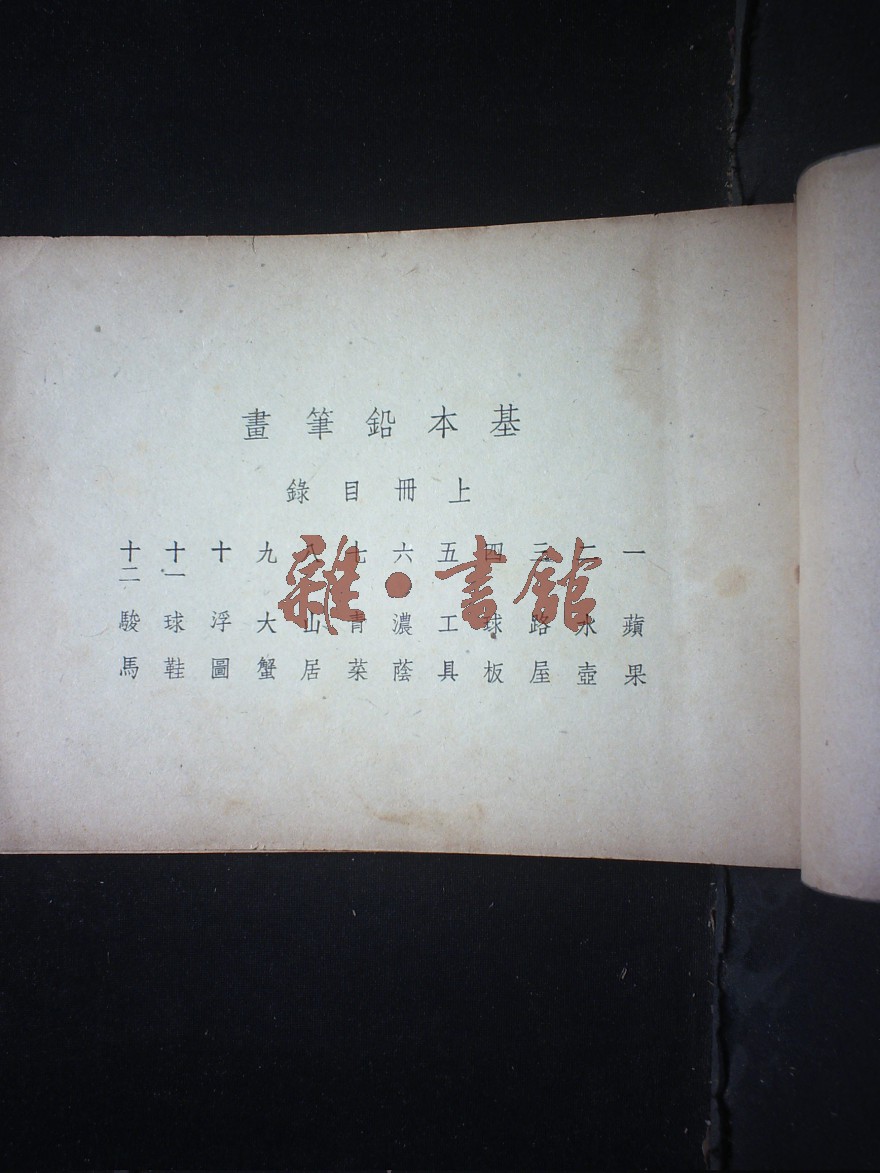 基本鉛筆畫
上冊目錄
一 蘋果
二 水壺
三 路屋
四 球板
五 工具
六 濃蔭
七 青菜
八 山居
九 大蟹
十 浮圖
十一 球鞋
十二 駿馬
雜·書館